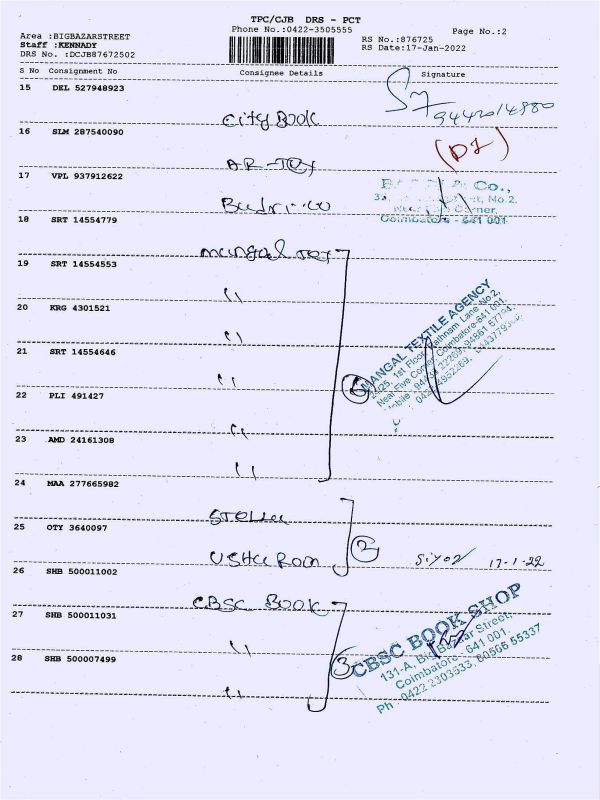 TPC/CJB DRS - PCT
Phone No.:0422-3505555
Page No.:2
Area :BIGBAZARSTREET
Staff :KENNADY
DRS No. :DCJB87672502
RS No.:876725
RS Date:17-Jan-2022
S No Consignment No Consignee Details Signature
15 DEL 527948923
City Book
9442014880
16 SLM 287540090
AR-Tex
17 VPL 937912622
Co.,
No.2,
Corner,
Coimbatore - 641 001
18 SRT 14554779
Mangal Tex
19 SRT 14554553
"
20 KRG 4301521
"
21 SRT 14554646
"
22 PLI 491427
"
23 AMD 24161308
"
6
MANGAL TEXTILE AGENCY
1st Floor, Rathnam Lane No.2,
Near Five Corner, Coimbatore-641 001.
24 MAA 277665982
25 OTY 3640097
2
17-1-22
26 SHB 500011002
CBSC Book
27 SHB 500011031
"
28 SHB 500007499
"
3
CBSC BOOK SHOP
131-A, Big Bazaar Street,
Coimbatore - 641 001.
Ph : 0422 2303633, 80566 55337